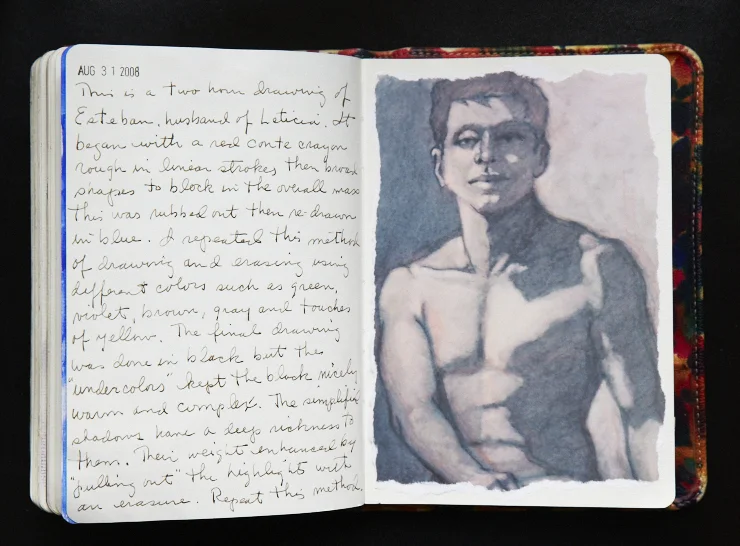 AUG 31 2008
This is a two hour drawing of
Esteban, husband of Leticia. It
began with a red conte crayon
rough in linear strokes then broad
shapes to block in the overall mass
This was rubbed out then re-drawn
in blue. I repeated this method
of drawing and erasing using
different colors such as green,
violet, brown, gray and touches
of yellow. The final drawing
was done in black but the
"undercolors" kept the black nicely
warm and complex. The simplified
shadows have a deep richness to
them. Their weight enhanced by
"pulling out" the highlights with
an erasure. Repeat this method.